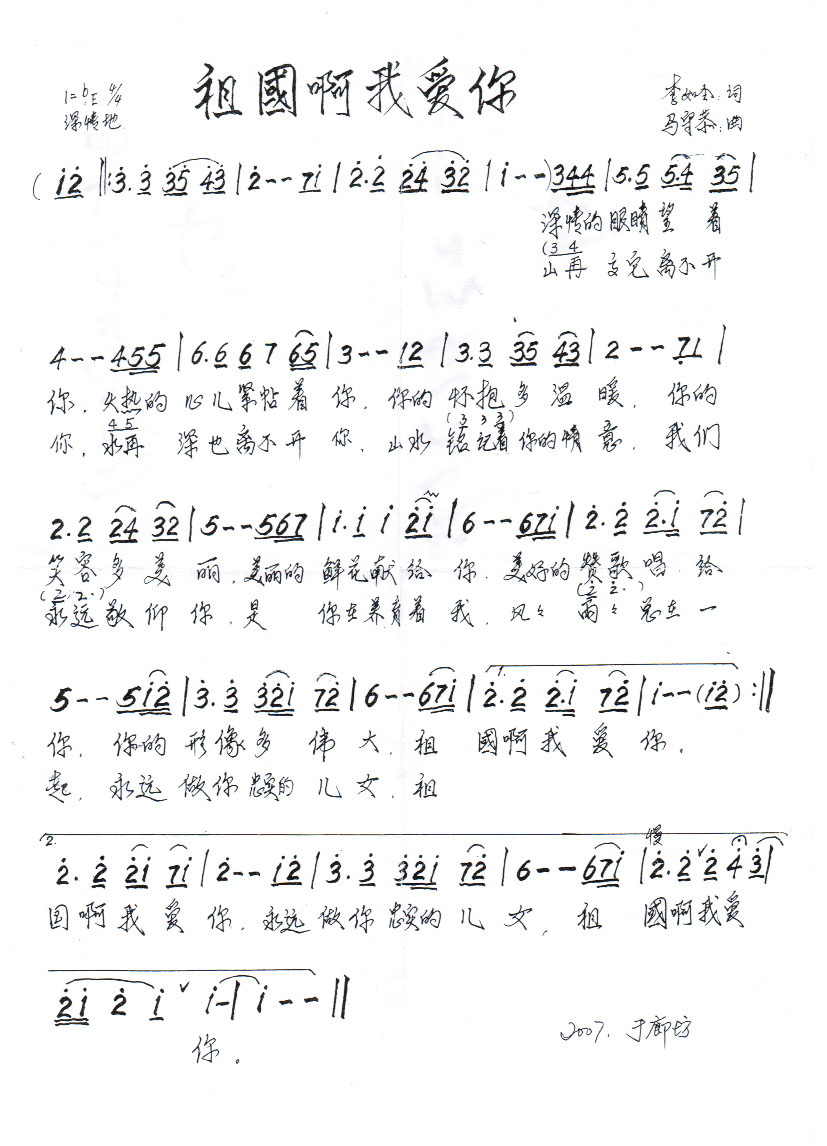 祖國啊我爱你
1=bE 4/4
深情地
李如奎:词
马守恭:曲
(i2 ‖:3.3 35 43|2--7i|2.2 24 32|i--)344|5.5 5.4 35|
深情的眼睛望着
(3 4
山再高它离不开
4--455|6.6 6 7 65|3--12|3.3 35 43|2--7.1|
你.火热的心儿紧帖着你.你的怀抱多温暖.你的
4 5
(3 3 3)
你.水再深也离不开你.山水铭记着你的情意.我们
2.2 24 32|5--567|i.i i 2i|6--67i|2.2 2.i 72|
笑容多美丽.美丽的鲜花献给你.美好的赞歌唱给
(2.2.)
(2 2.)
永远敬仰你.是你在养育着我.风々雨々总在一
5--5i2|3.3 32i 72|6--67i|2.2 2.i 72|i--(i2):‖
你.你的形像多伟大.祖國啊我爱你.
起.永远做你忠实的儿女.祖
2.
慢
2.2 2i 7i|2--i2|3.3 32i 72|6--67i|2.2 2 4 3|
国啊我爱你.永远做你忠实的儿女.祖國啊我爱
2i 2 i i-|i--‖
你.
2007.于廊坊